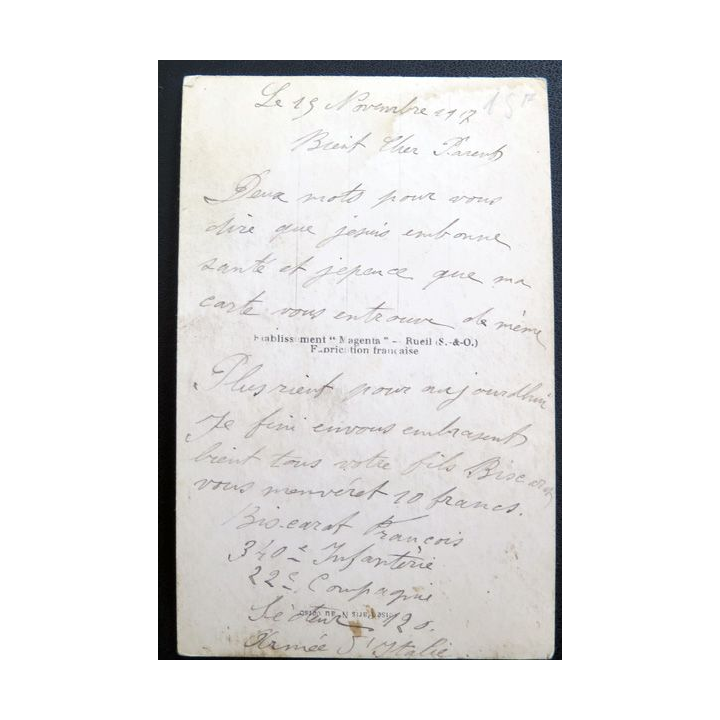 Le 19 Novembre 1917
15F
Bient Cher Parents
Deux mots pour vous
dire que jesuis embonne
santé et jepence que ma
carte vous entrouve de même
Etablissement "Magenta" — Rueil (S.-&-O.)
Fabrication française
Plusrient pour aujourdhui
Je fini envous embrasent
bient tous votre fils Biscarat
vous menvéret 10 francs.
Biscarat François
340e Infanterie
22e Compagnie
Secteur 120.
Armée D'Italie